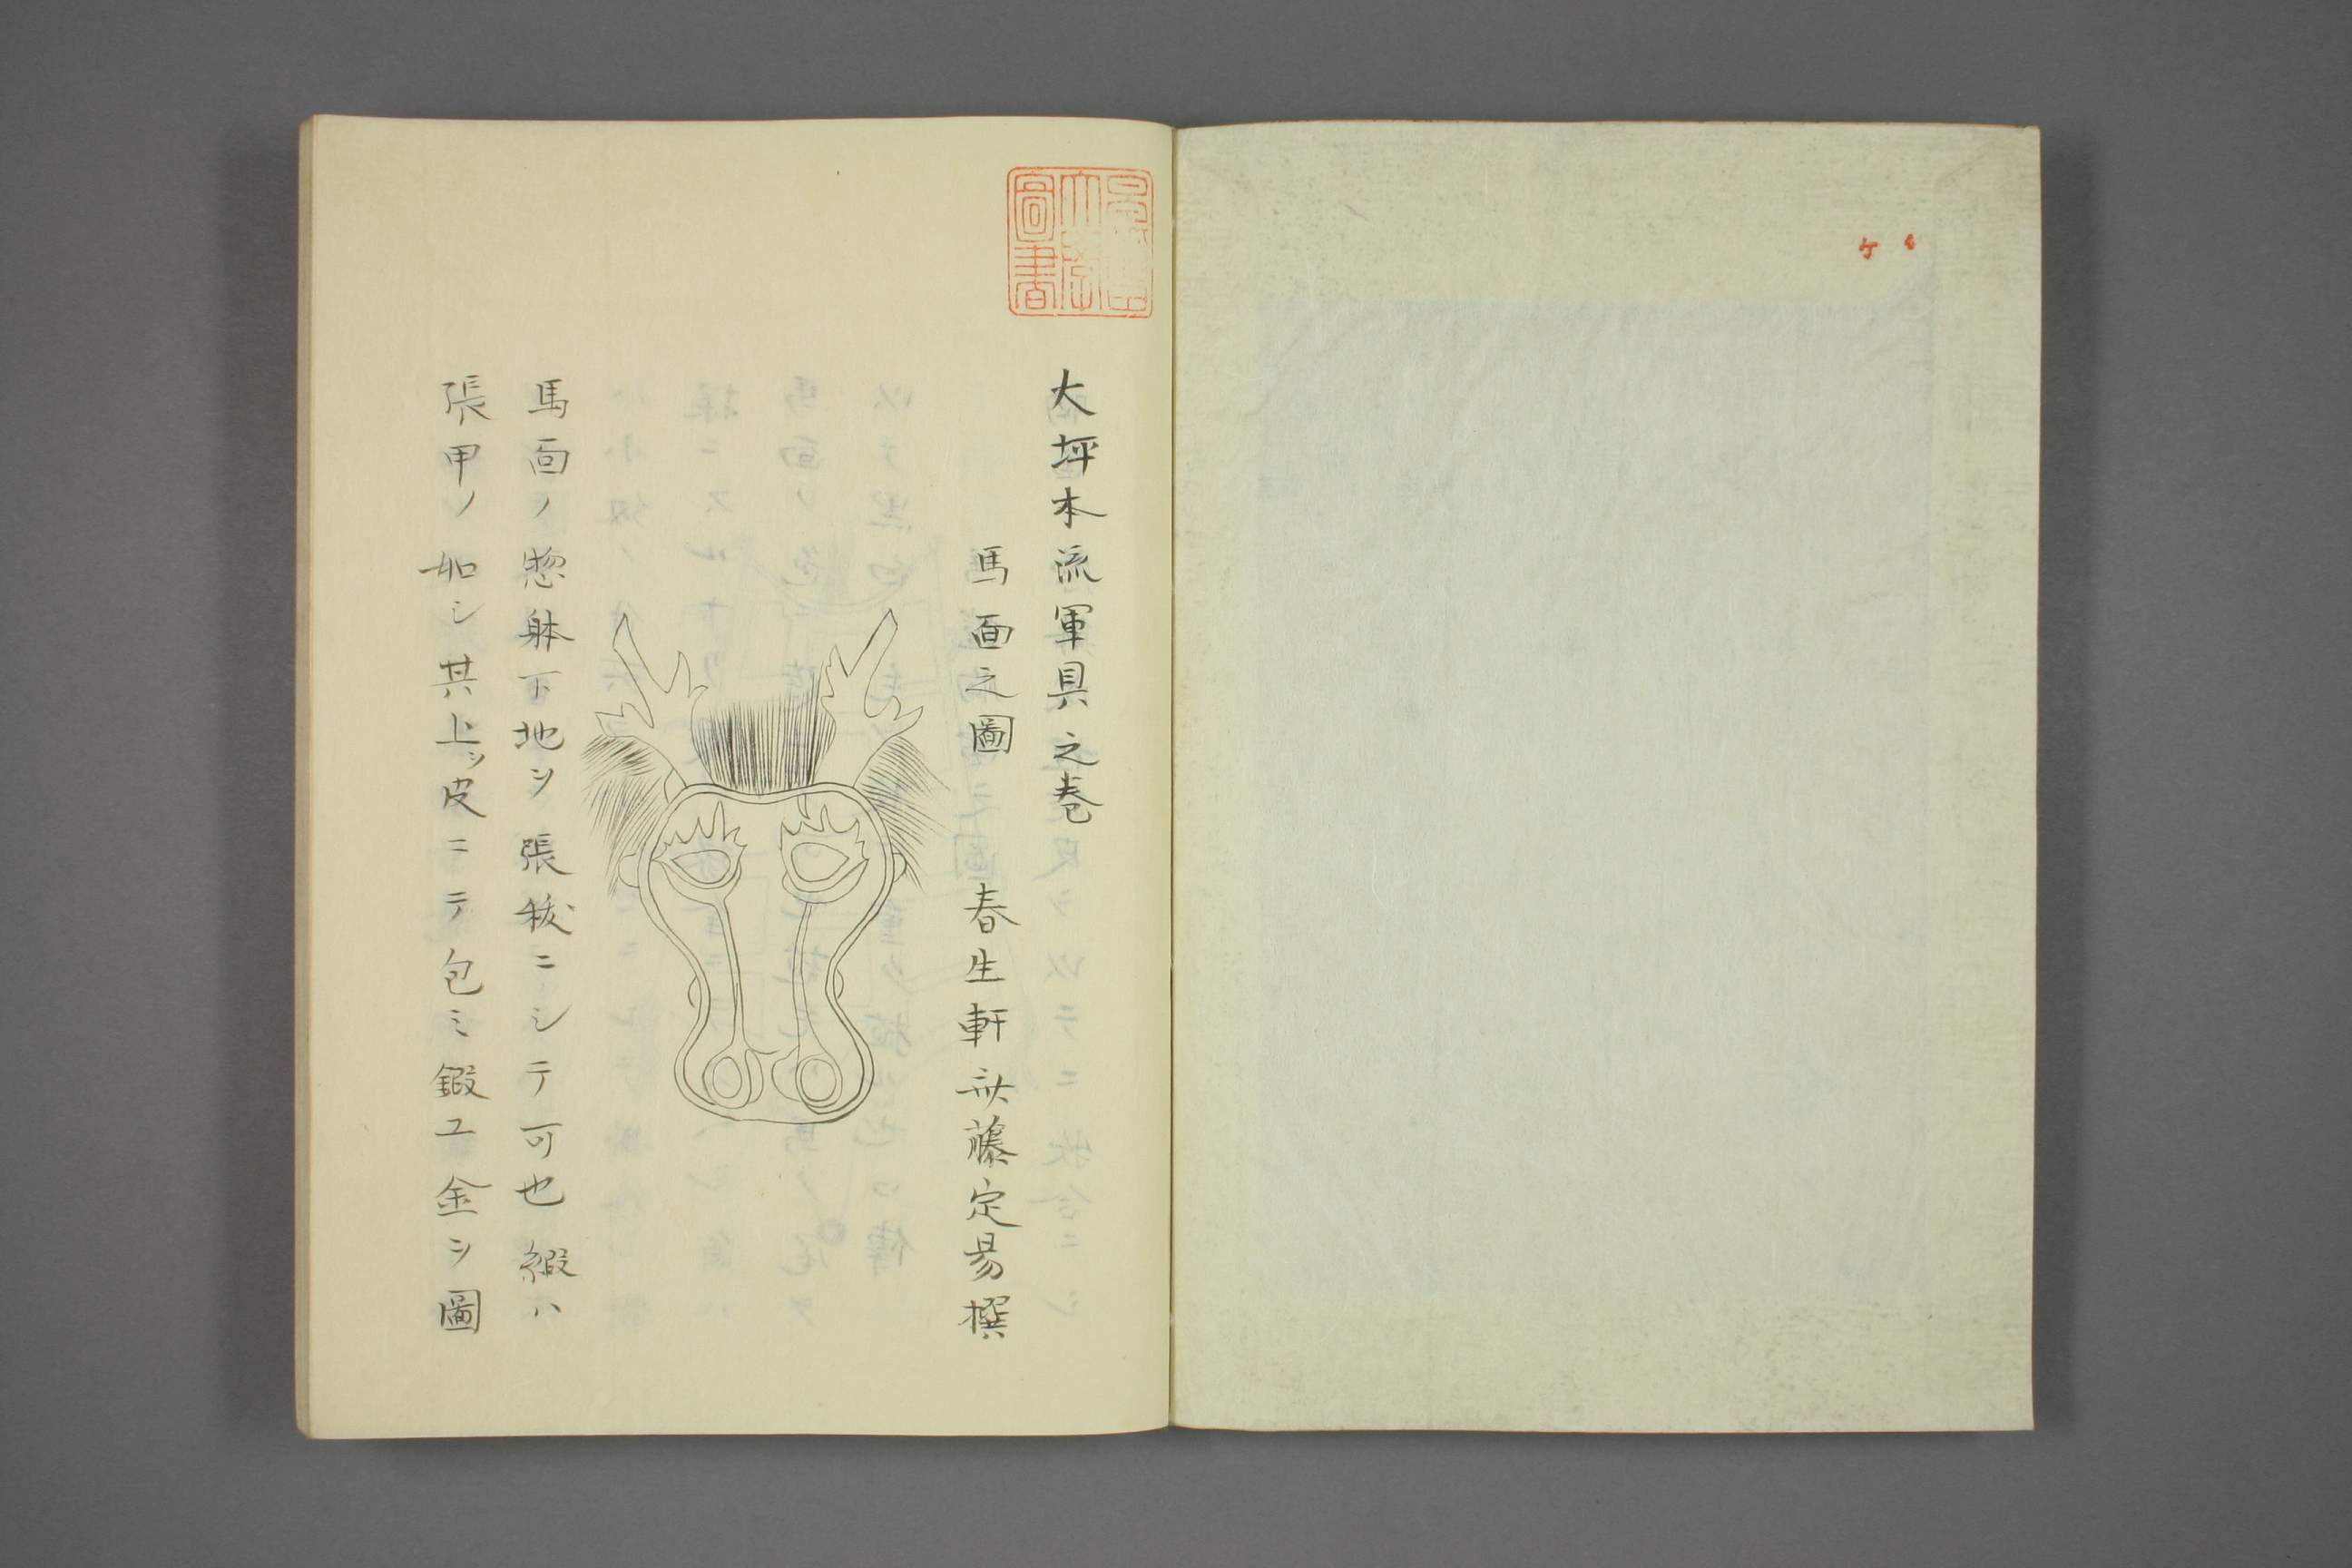 大坪本流軍具之巻
馬面之圖 春生軒 斎藤定易撰
馬面ノ惣躰下地ヲ張抜ニシテ可也 綴ハ
張甲ノ如シ其上ッ皮ニテ包ミ鍛ユ金ヲ圖
圖書
ケ